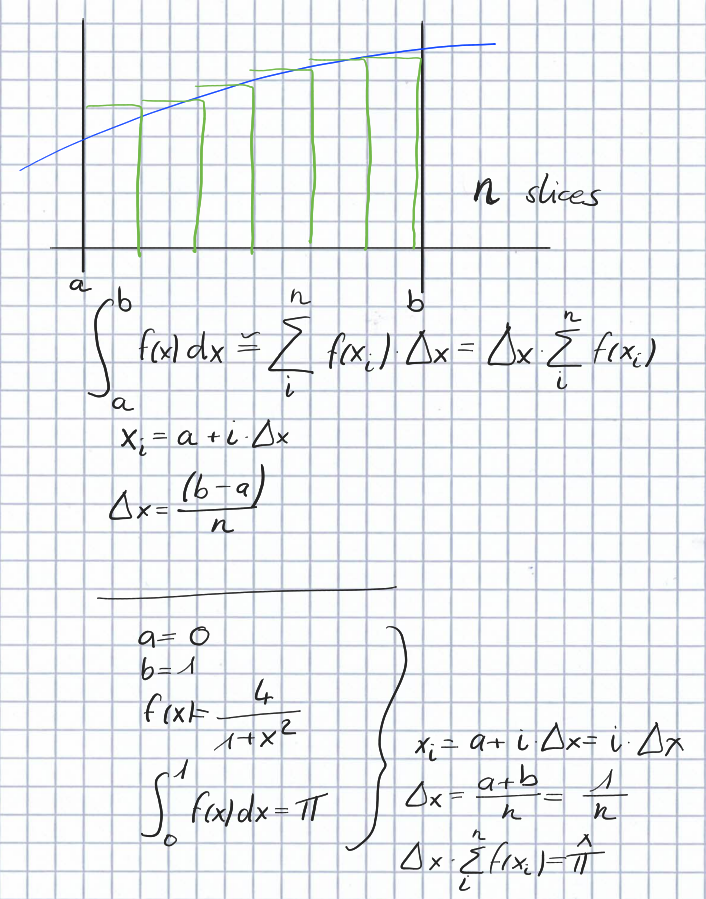 n slices
a
b
∫_a^b f(x) dx ≅ ∑_i^n f(x_i) · Δx = Δx · ∑_i^n f(x_i)
x_i = a + i · Δx
Δx = (b - a) / n
a = 0
b = 1
f(x) = 4 / (1 + x²)
∫_0^1 f(x) dx = π
x_i = a + i · Δx = i · Δx
Δx = (a + b) / n = 1 / n
Δx · ∑_i^n f(x_i) = π̂